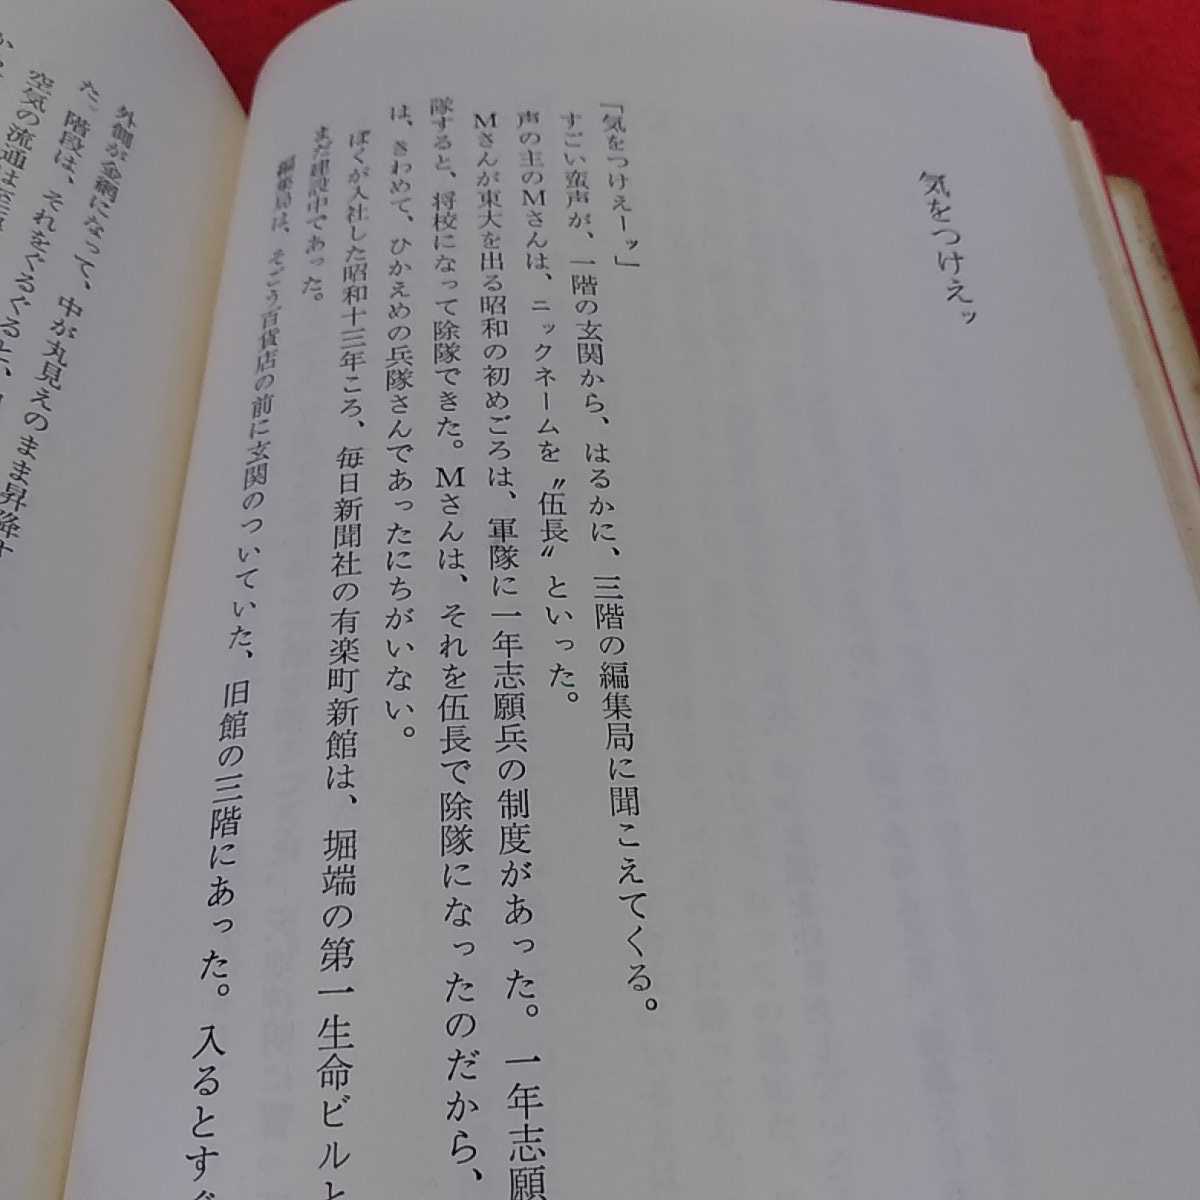 気をつけえッ
「気をつけえーッ」
すごい蛮声が、一階の玄関から、はるかに、三階の編集局に聞こえてくる。
声の主のMさんは、ニックネームを〝伍長〟といった。
Mさんが東大を出る昭和の初めごろは、軍隊に一年志願兵の制度があった。一年志願
隊すると、将校になって除隊できた。Mさんは、それを伍長で除隊になったのだから、
は、きわめて、ひかえめの兵隊さんであったにちがいない。
ぼくが入社した昭和十三年ころ、毎日新聞社の有楽町新館は、堀端の第一生命ビルと
まだ建設中であった。
編集局は、そごう百貨店の前に玄関のついていた、旧館の三階にあった。入るとすぐ
外側が金網になって、中が丸見えのまま昇降す
た。階段は、それをぐるぐる
空気の流通は